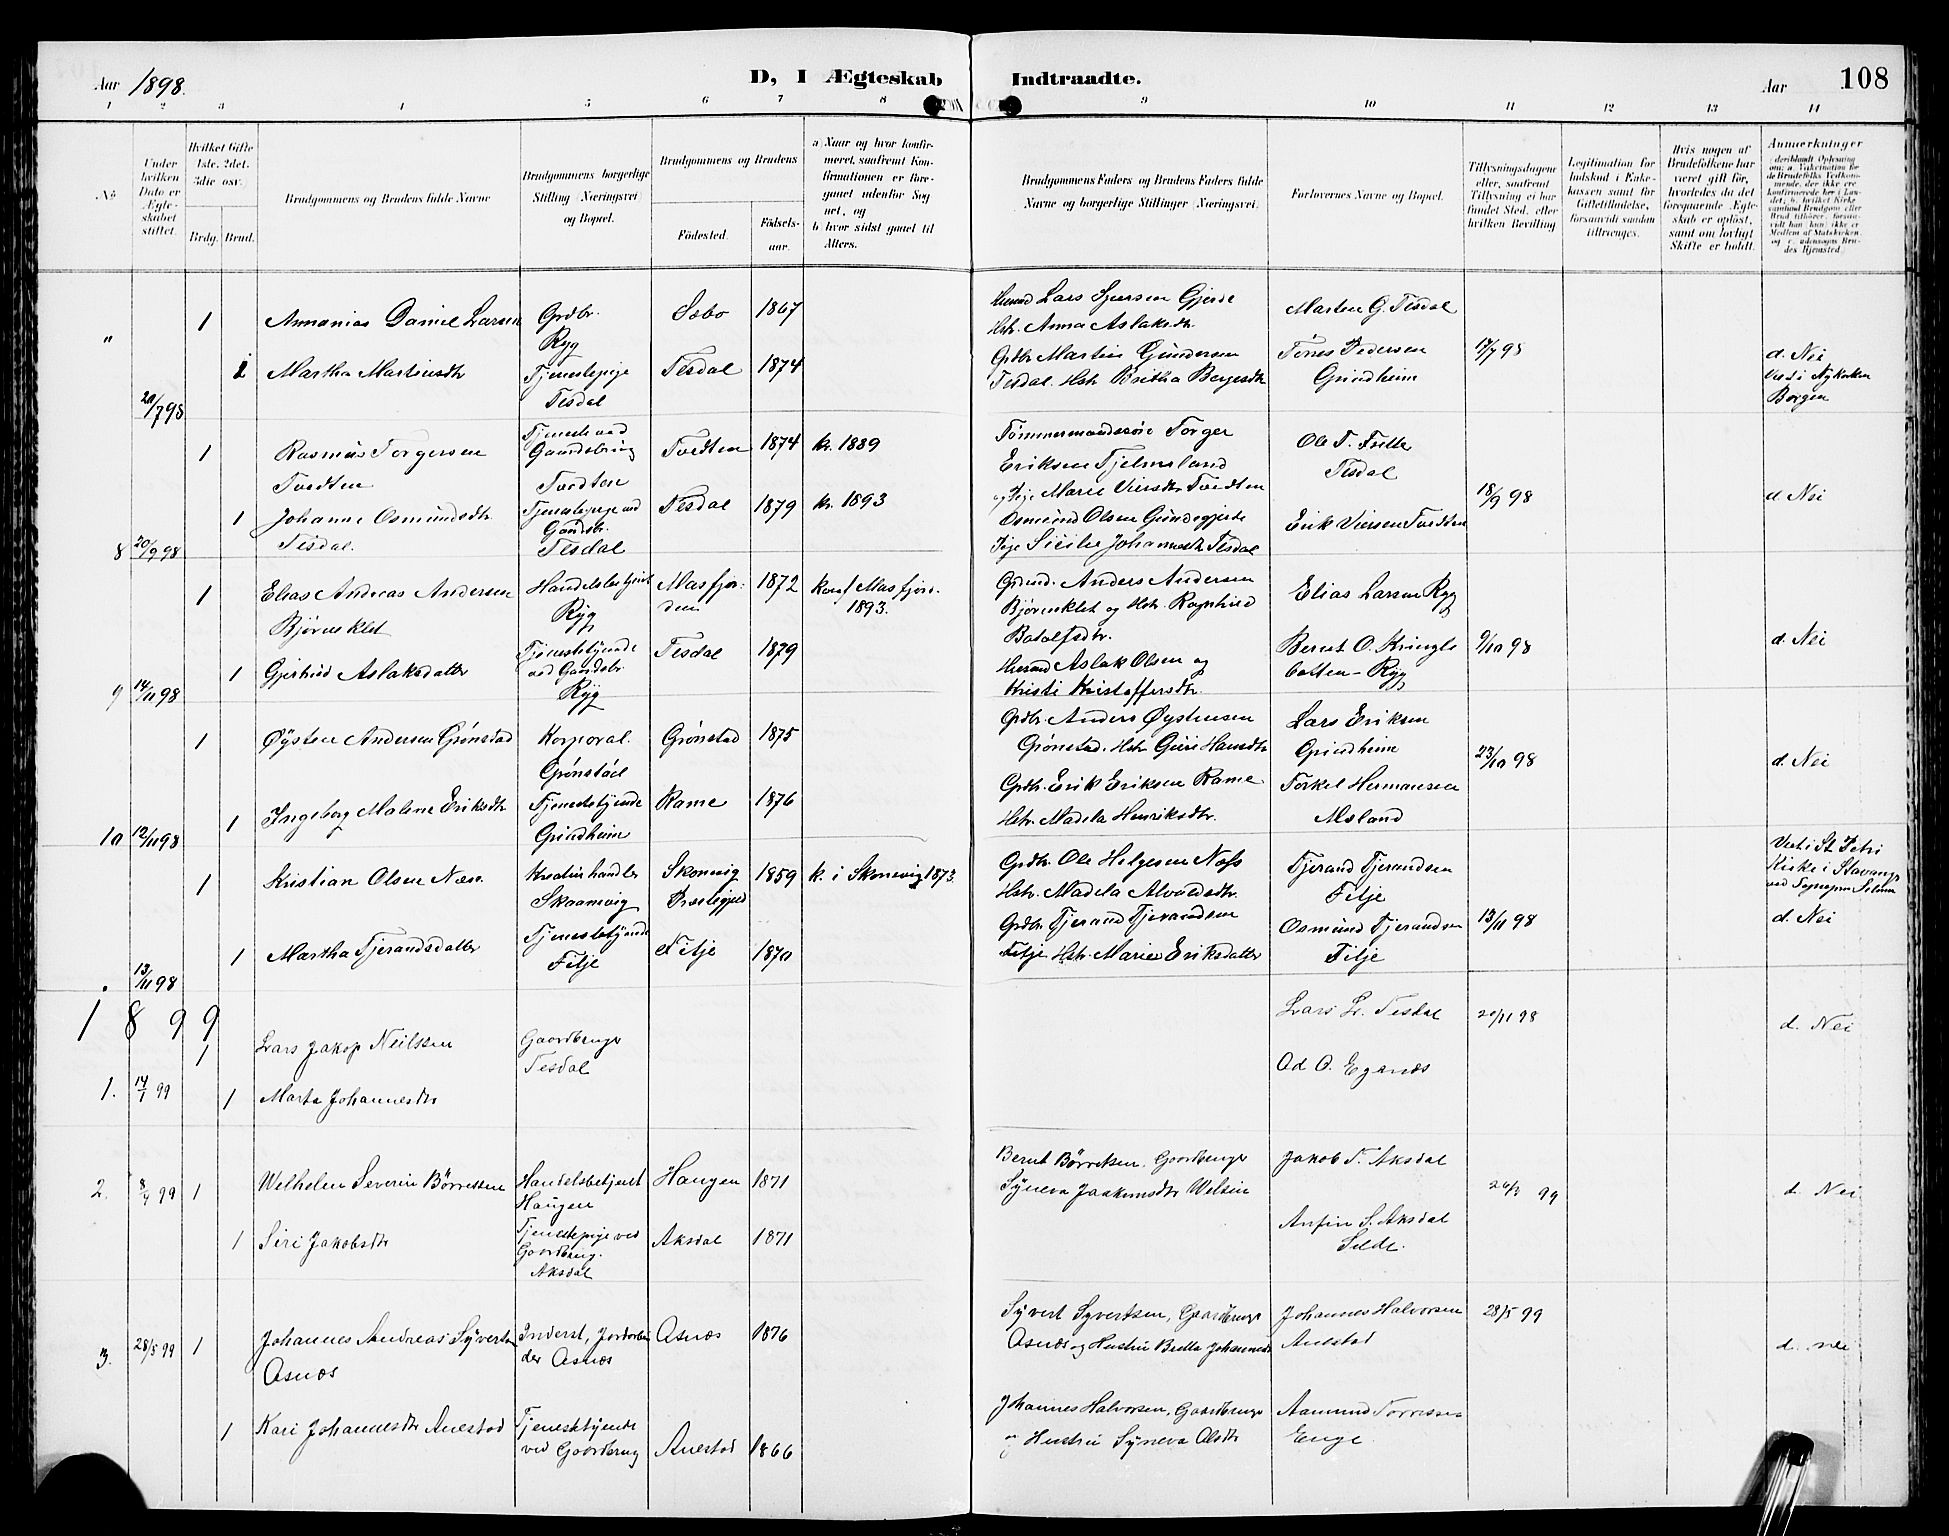 Aar 1898.
D, I Ægteskab Indtraadte.
Aar 108
1 2 3 4 5 6 7 8 9 10 11 12 13 14
No
Under hvilken Dato er Ægteskabet stiftet.
Hvilket Gifte 1ste, 2det, 3die osv.
Brdg. Brud.
Brudgommens og Brudens fulde Navne
Brudgommens borgerlige Stilling (Næringsvei) og Bopæl.
Brudgommens og Brudens
Fødested. Fødselsaar.
a) Naar og hvor konfirmeret, saafremt Konfirmationen er foregaaet udenfor Sognet, og
b) hvor sidst gaaet til Alters.
Brudgommens Faders og Brudens Faders fulde Navne og borgerlige Stillinger (Næringsvei).
Forlovernes Navne og Bopæl.
Tillysningsdagene eller, saafremt Tillysning ei har fundet Sted, eller hvilken Bevilling
Legitimation for Indskud i Enkekassen samt for Giftetilladelse, forsaavidt saadan tiltrænges.
Hvis nogen af Brudefolkene har været gift før, hvorledes da det foregaaende Ægteskab er opløst, samt om lovligt Skifte er holdt.
Anmerkninger
" 20/7 98
1 Annanias Daniel Larsen
Grdbr. Ryg
Sæbo 1867
Lars Sjursen Gjerde
Hst. Anna Aslaksdtr
Marten G. Tesdal
1 Martha Martinsdtr
Tjenestepige Tesdal
Tesdal 1874
Grdbr Martin Gundersen
Tesdal. Hst. Britha Bergesdtr
Tönes Pedersen
Grindheim
17/7 98
d. Nei
Viet i Nykirken
Bergen
8 20/9 98
1 Rasmus Torgersen
Tvedten
Tjeneste ved
Gaardsbrug
Tvedten
Tvedten 1874 k. 1889
Torger
Eriksen Tjelmeland
og Pige Marie Viersdtr Tvedten
Ole T. Fritte
Tesdal
1 Johanne Osmundsdtr.
Tesdal.
Tjenestepige ved
Gaardsbr.
Tesdal
Tesdal 1879 k. 1893
Osmund Olsen Gundegjerde
Pige Sicilie Johannesdtr Tesdal
Erik Viersen Tvedten
18/9 98
d. Nei
9 14/11 98
1 Elias Andreas Andersen
Bjørneklet
Handelsbetjent
Ryg
Masfjorden 1872
Konf Masfjord.
1893.
Grdmd. Anders Andersen
Bjørneklet og Hst. Ragnhild
Botolfsdtr.
Elias Larsen Ryg
1 Gjertrud Aslaksdatter
Tjenestetjende
ved Gaardsbr.
Ryg
Tesdal 1879
Aslak Olsen og
Kristi Kristoffersdtr.
Bernt O. Kringle
botten - Ryg
9/10 98
d. Nei
10 12/11 98
1 Øysten Andersen Grønstad
Korporal.
Grønstad
Grønstad 1875
Grdbr. Anders Øystensen
Grønstad. Hst. Guri Hansdtr
Lars Eriksen
Grindheim
1 Ingeborg Malene Eriksdtr
Tjenestetjende
Grindheim
Rame 1876
Grdbr. Erik Eriksen Rame
Hst. Madela Henriksdtr.
Torkel Hermansen
Møland
23/10 98
d. Nei
13/11 98
1 Kristian Olsen Næs.
Kreaturhandler
Skaanevig
Skonevig
Præstegjeld 1859
k. i Skonevig 1873.
Grdbr. Ole Helgesen Næss
Hst. Madela Alvaldsdtr.
Tjerand Tjerandsen
Fitje
Viet i St. Petri
Kirke i Stavanger
1 Martha Tjerandsdatter
Tjenestetjende
Fitje
Fitje 1870
Grdbr Tjerand Tjerandsen
Fitje Hst. Marie Eriksdatter
Osmund Tjerandsen
Fitje
13/11 98
d. Nei
1899
1. 14/1 99
1 Lars Jakop Neilssen
Gaardbruger
Tesdal
Lars L. Tesdal
20/11 98
d. Nei
1 Marta Johannesdtr
Od O. Egenæs
2. 8/4 99
1 Welhelm Severin Børretsen
Handelsbetjent
Haugen
Haugen 1871
Bernt Børretsen. Gaardbruger
Syneva Jaakemsdtr
Jakob T. Aksdal
26/3 99
d. Nei
1 Siri Jakobsdtr
Tjenestepige ved
Gaardbrug.
Aksdal
Aksdal 1871
Anfin S. Aksdal
Selde.
3. 28/5 99
1 Johannes Andreas Syvertsen
Asnæs
Inderst, Jordarbei
der Asnæs
Asnæs 1876
Syvert Syvertsen, Gaardbruger
Asnæs og Hustru Britta Johannesdtr
Johannes Halvorsen
Anestad
28/5 99
d. nei
1 Kari Johannesdtr Anestad
Tjenestetjende
ved Gaardbrug
Anestad 1866
Johannes Halvorsen, Gaardbruger
og Hustru Syneva Olsdtr
Aamund Torressen
Enge